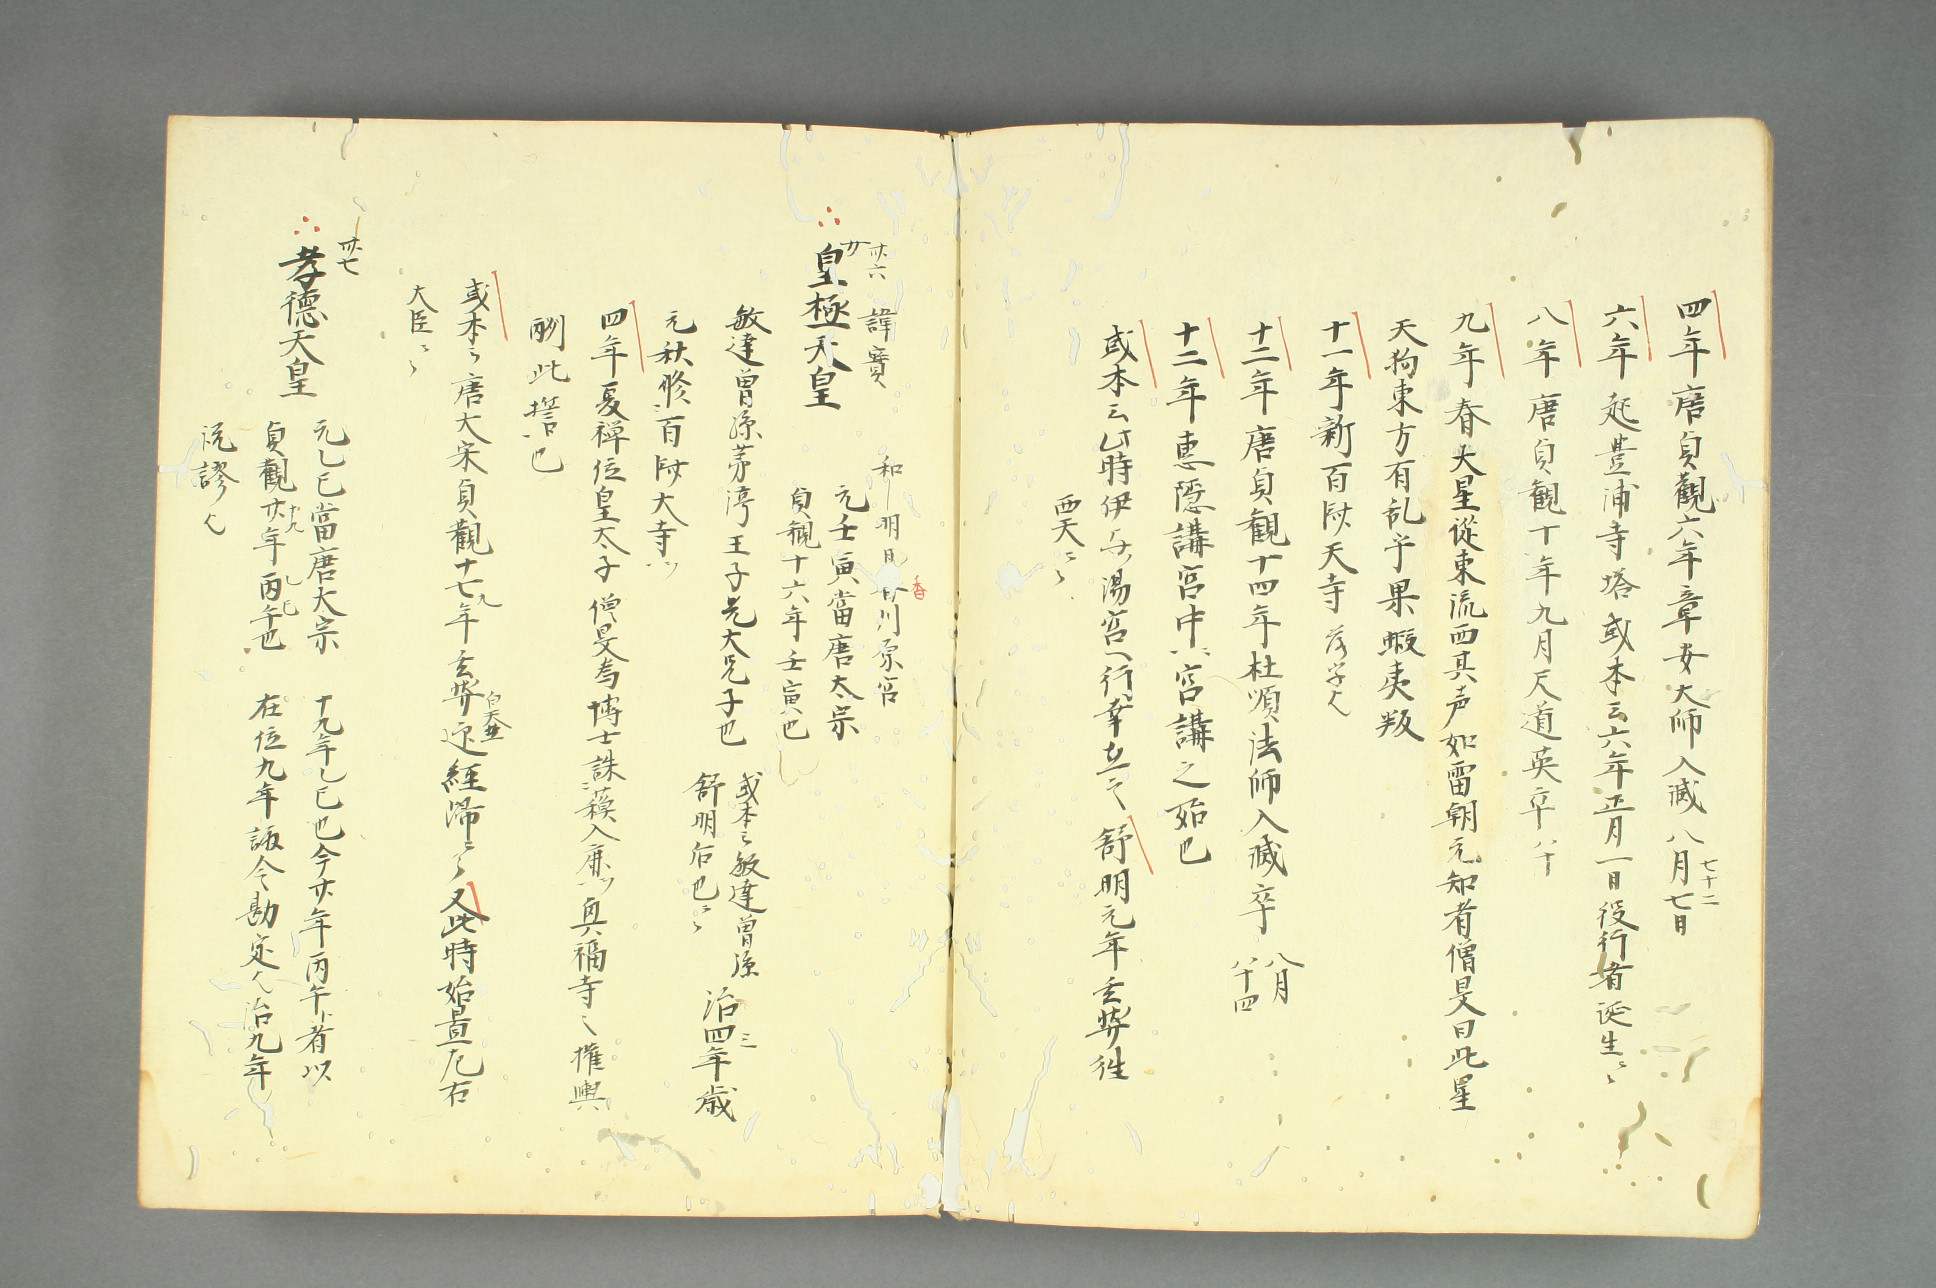 四年 唐貞觀六年章安大師入滅 八月七日 七十二
六年 起豊浦寺塔 或本云六年正月一日役行者誕生〻〻
八年 唐貞観十年九月 道英卒 八十
九年 春大星從東流西其声如雷朝元知者僧旻曰此星
天狗東方有乱乎果蝦夷叛
十一年 新百済大寺
十二年 唐貞観十四年杜順法師入滅卒 八月 八十四
十二年 恵隠講宮中〻宮講之始也
或本云此時伊与湯宮行幸在之 舒明元年玄奘往
西天〻〻
卅六 諱寶 和明日香川原宮
皇極天皇 元壬寅當唐太宗
貞観十六年壬寅也
敏達曽孫茅渟王子兄大兄子也 或本云敏達曽孫
舒明后也〻〻 治四年 三 歳
元秋修百済大寺
四年夏禅位皇太子 僧旻為博士誅入鹿 興福寺之権輿
酬此誓也
或本云唐大宗貞觀十七年 九 玄奘 自天竺 迎経帰〻〻 又此時始置左右
大臣〻〻
卅七
孝徳天皇 元乙巳當唐大宗 十九年乙巳也今廿年丙午者以
貞觀廿年 十九 丙午也 乙巳 在位九年 今勘定 治九年
説謬